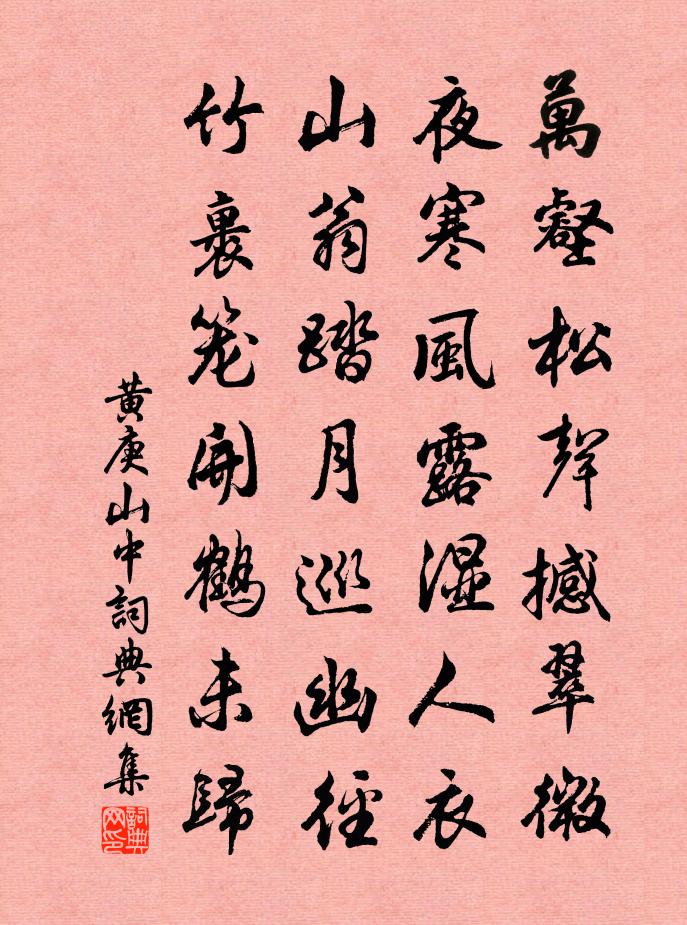 萬壑松聲撼翠微
夜寒風露濕人衣
山翁踏月巡幽徑
竹裏笼開鶴未歸
黄庚山中詞典網集
詞典网印